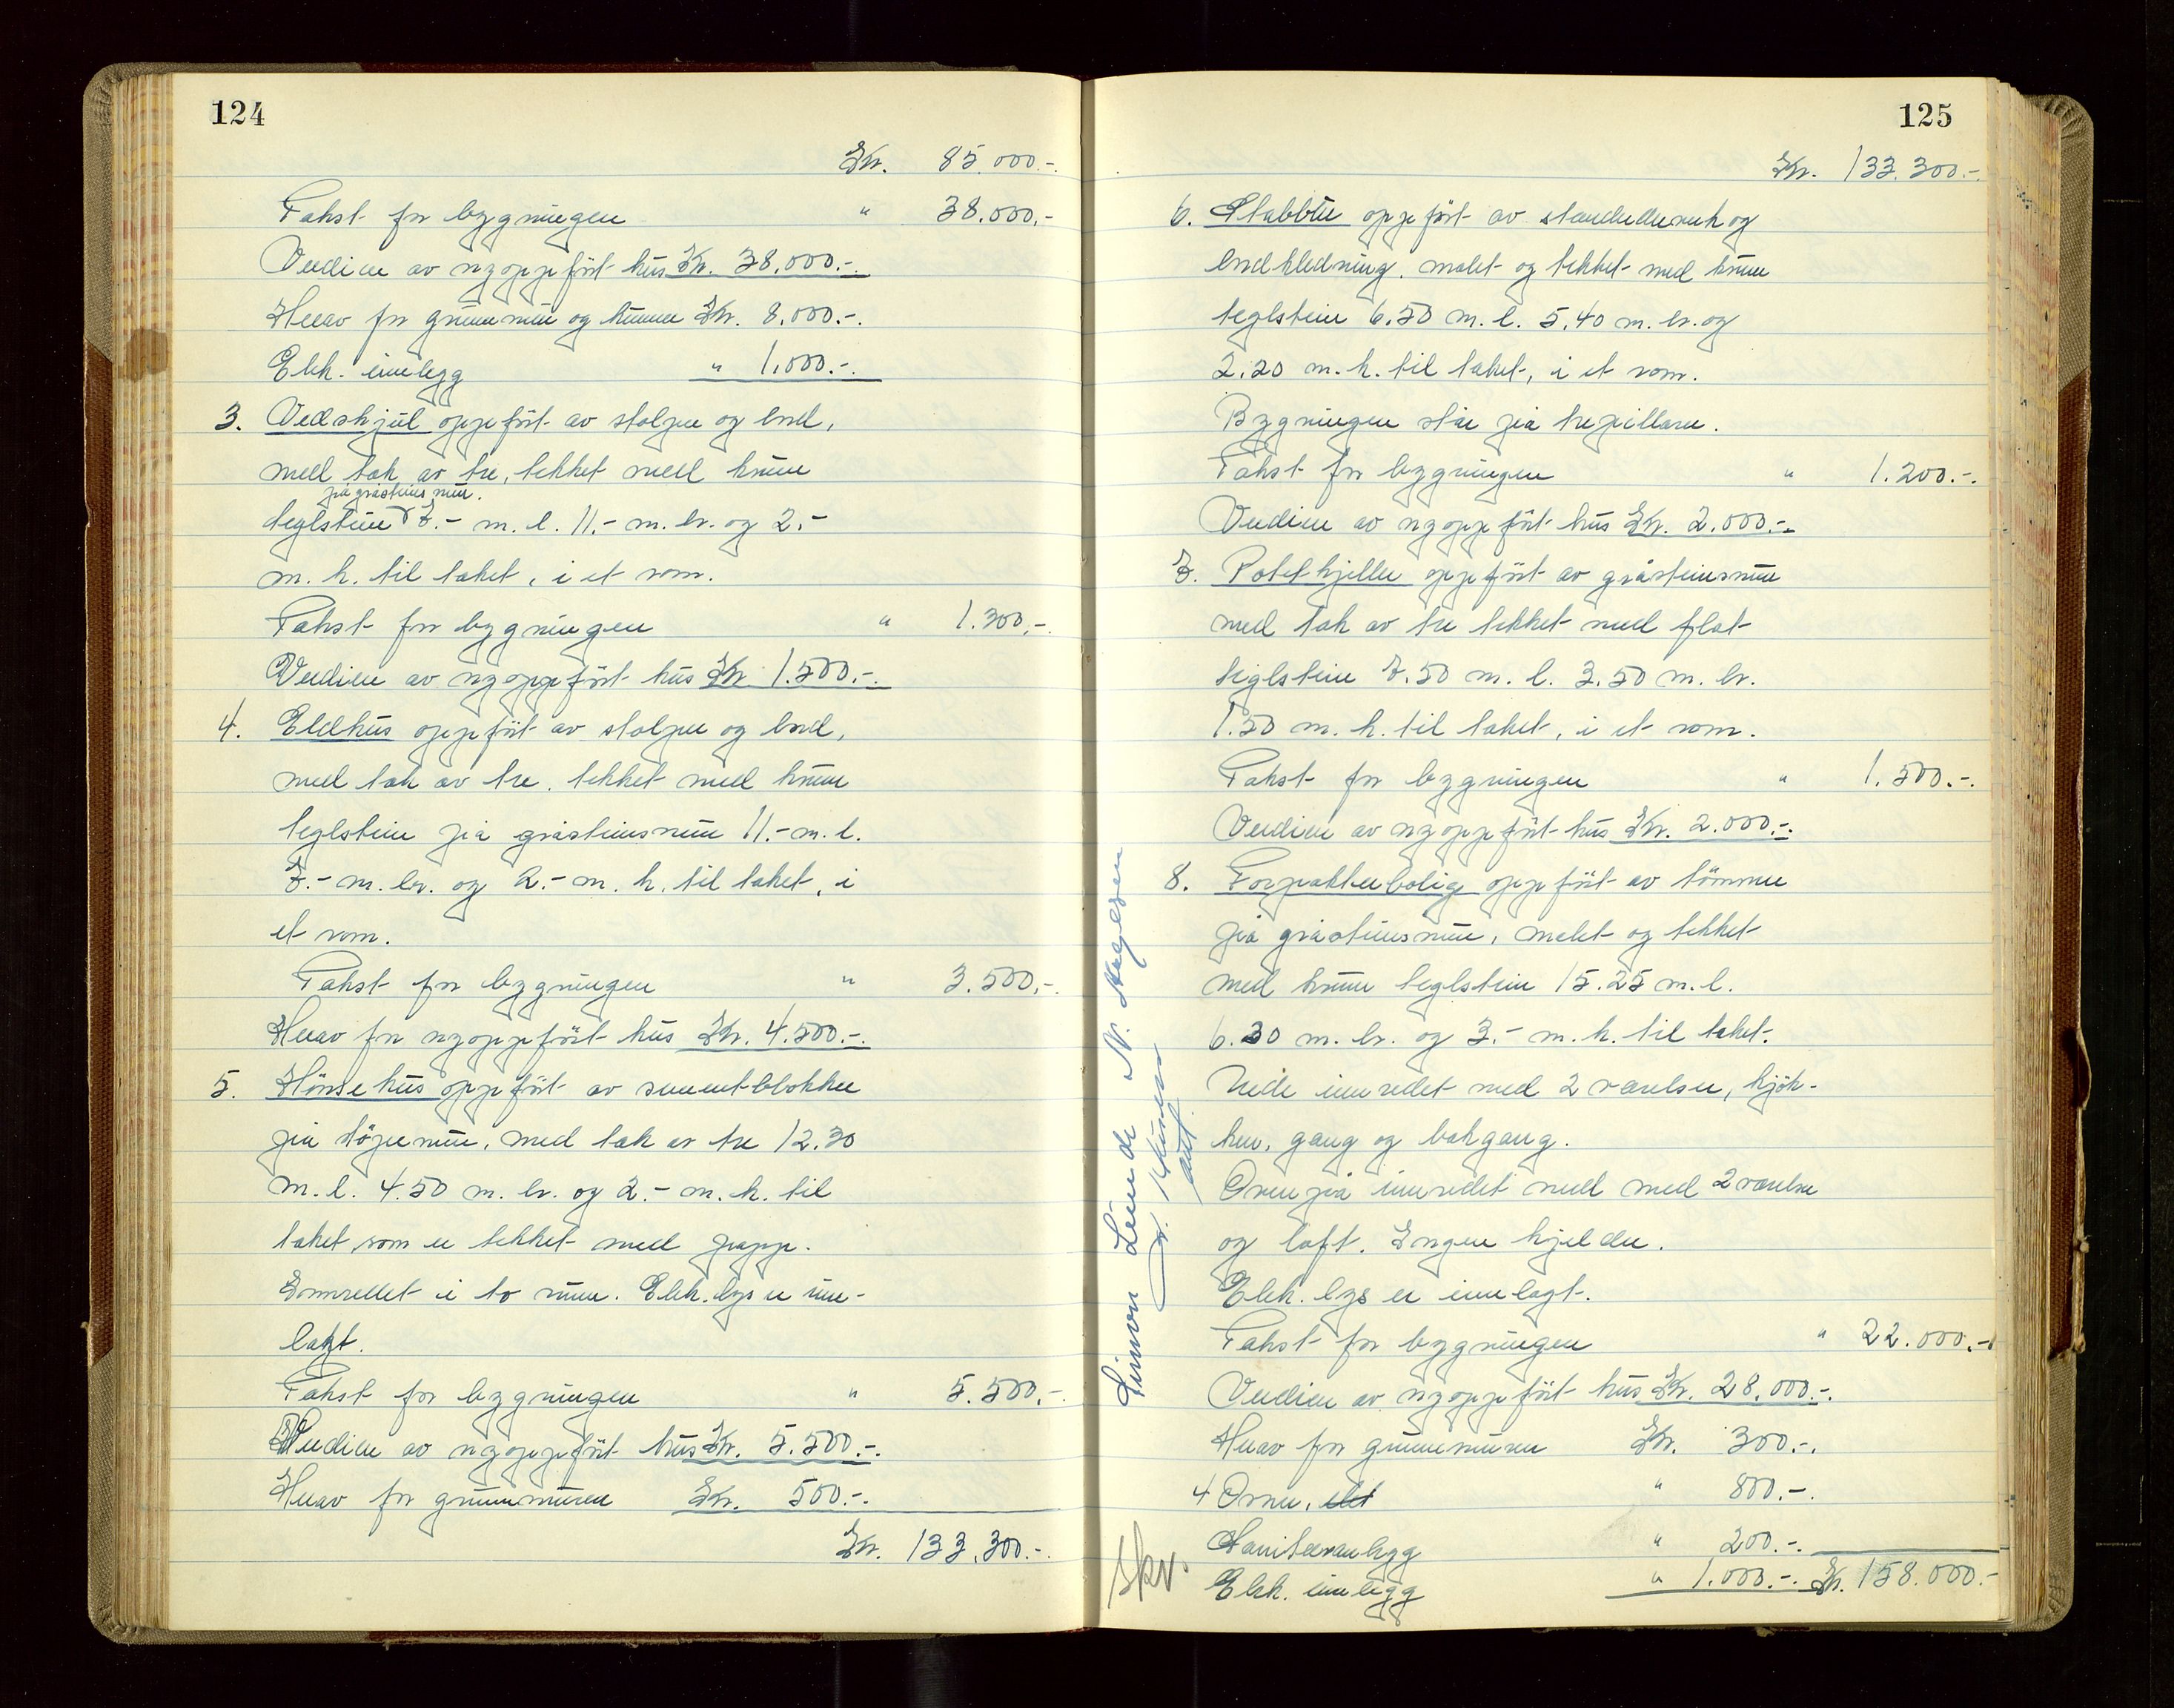 124
Kr. 85.000.-
Takst for bygningen " 38.000.-
Verdien av nyoppfört hus Kr. 38.000.-
Herav for grunnmur og kummer Kr. 8.000.-
Elek. innlegg " 1.000.-
3. Vedskjul oppfört av stolper og bord,
med tak av tre, tekket med krum
på gråsteins mur.
teglstein 7.- m. l. 11.- m. br. og 2.-
m. h. til taket, i et rom.
Takst for bygningen " 1.300.-
Verdien av nyoppfört hus Kr 1.500.-
4. Eldhus oppfört av stolper og bord,
med tak av tre, tekket med krum
teglstein på gråsteinsmur 11.- m. l.
7.- m. br. og 2.- m. h. til taket, i
et rom.
Takst for bygningen " 3.500.-
Herav for nyoppfört hus Kr. 4.500.-
5. Hönsehus oppfört av sementblokker
på stöpemur, med tak av tre 12.30
m. l. 4.50 m. br. og 2.- m. h. til
taket, som er tekket med papp.
Innredet i to rum. Elek. lys er inn-
lagt.
Takst for bygningen " 5.500.-
Verdien av nyoppfört hus Kr. 5.500.-
Herav for grunnmuren Kr. 500.-
Kr. 133.300.-
125
Kr. 133.300.-
6. Stabbur oppfört av standerverk og
bordkledning, malt og tekket med krum
teglstein 6.50 m. l. 5.40 m. br. og
2.20 m. h. til taket, i et rom.
Bygningen står på trepillarer.
Takst for bygningen " 1.200.-
Verdien av nyoppfört hus Kr. 2.000.-
7. Potetkjeller oppfört av gråsteinsmur
med tak av tre tekket med flat
teglstein 7.50 m. l. 3.50 m. br.
1.50 m. h. til taket, i et rom.
Takst for bygningen " 1.500.-
Verdien av nyoppfört hus Kr. 2.000.-
8. Forpakterbolig oppfört av tömmer
på gråsteinsmur, malet og tekket
med krum teglstein 15.25 m. l.
6.30 m. br. og 3.- m. h. til taket.
Nede innredet med 2 værelser, kjök-
ken, gang og bakgang.
Ovenpå innredet med med 2 værelser
og loft. Ingen kjelder.
Elek. lys er innlagt.
Takst for bygningen " 22.000.-
Verdien av nyoppfört hus Kr. 28.000.-
Herav for grunnmuren Kr. 300.-
4 Ovner, " 800.-
Sanitæranlegg " 200.-
Elek. innlegg " 1.000.- Kr. 158.000.-
Simon Lunde N.
skr.